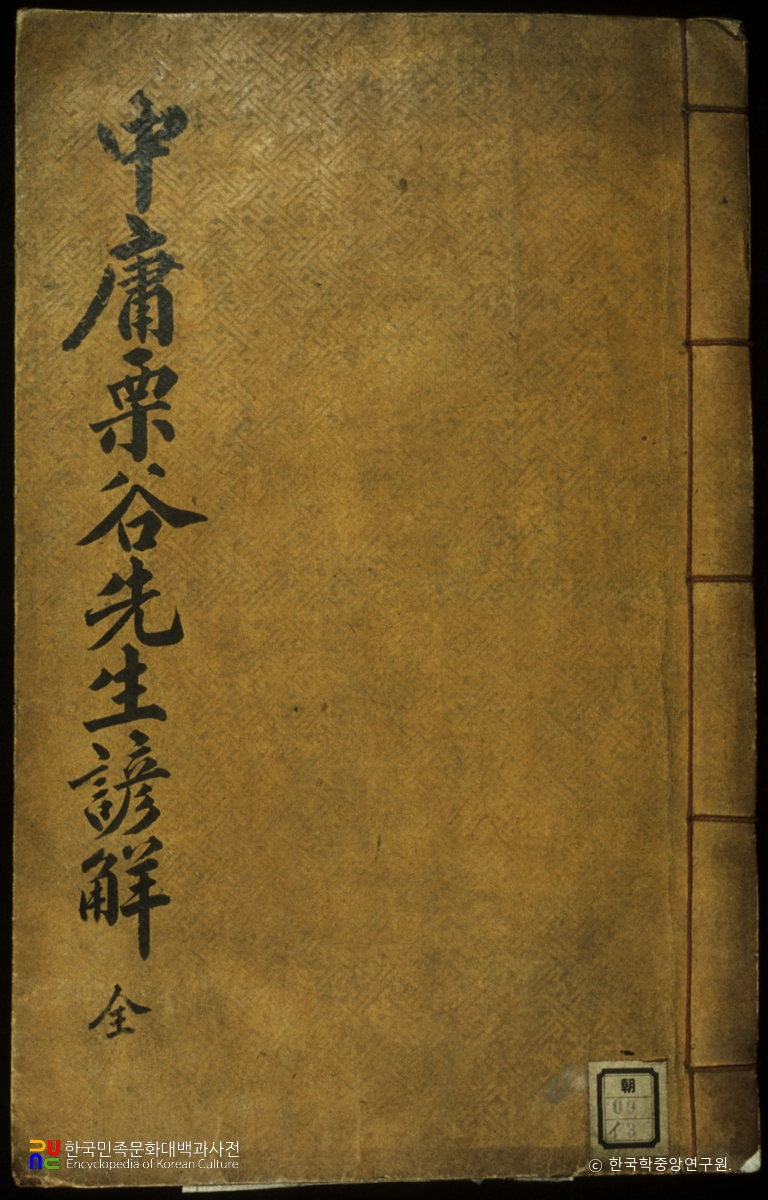 中庸栗谷先生諺觧
全
朝
09
イ3
한국민족문화대백과사전
Encyclopedia of Korean Culture
© 한국학중앙연구원.